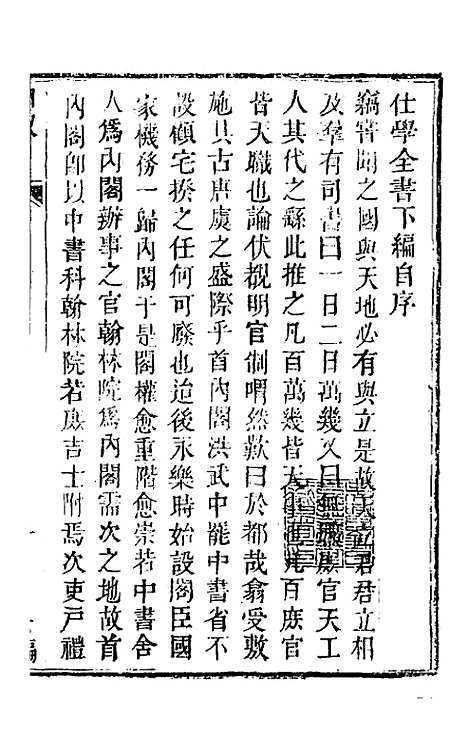 仕學全書下編自序
竊嘗聞之國與天地必有與立是故立君君立相
及羣有司書曰一日二日萬幾又曰無曠庶官天工
人其代之繇此推之凡百萬幾皆天也凡百庶官
皆天職也論伏覩明官制喟然歎曰於都哉翕受敷
施具古唐虞之盛際乎首內閣洪武中罷中書省不
設顧宅揆之任何可廢也迨後永樂時始設閣臣國
家機務一歸內閣于是閣權愈重階愈崇若中書舍
人爲內閣辦事之官翰林院爲內閣需次之地故首
內閣卽以中書科翰林院若庶吉士附焉次吏戸禮